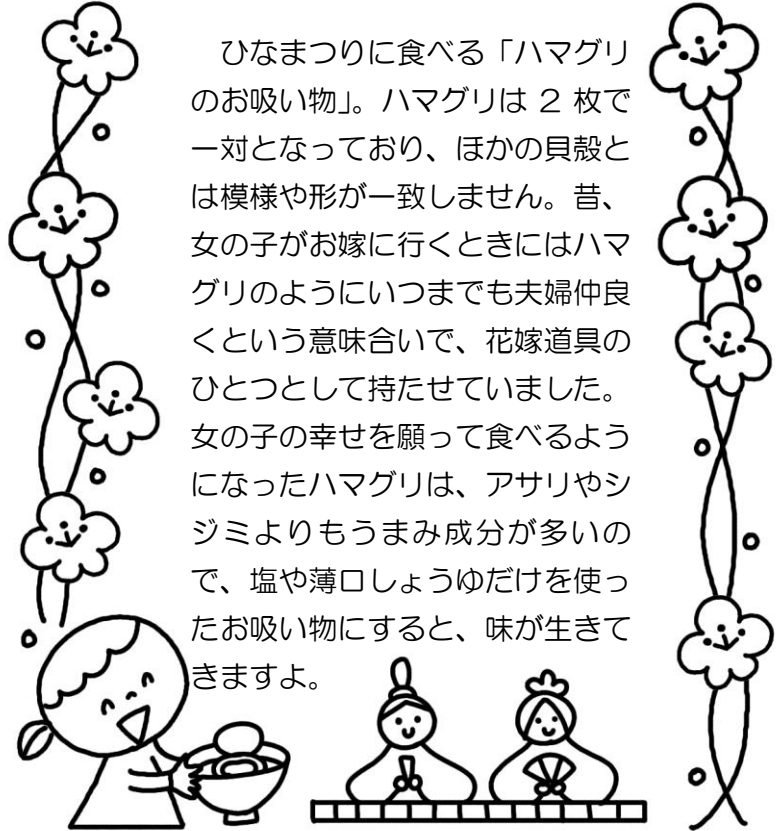 ひなまつりに食べる「ハマグリ
のお吸い物」。ハマグリは 2 枚で
一対となっており、ほかの貝殻と
は模様や形が一致しません。昔、
女の子がお嫁に行くときにはハマ
グリのようにいつまでも夫婦仲良
くという意味合いで、花嫁道具の
ひとつとして持たせていました。
女の子の幸せを願って食べるよう
になったハマグリは、アサリやシ
ジミよりもうまみ成分が多いの
で、塩や薄口しょうゆだけを使っ
たお吸い物にすると、味が生きて
きますよ。